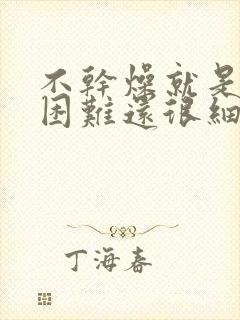 不幹燥就是
困難還很細
丁海春